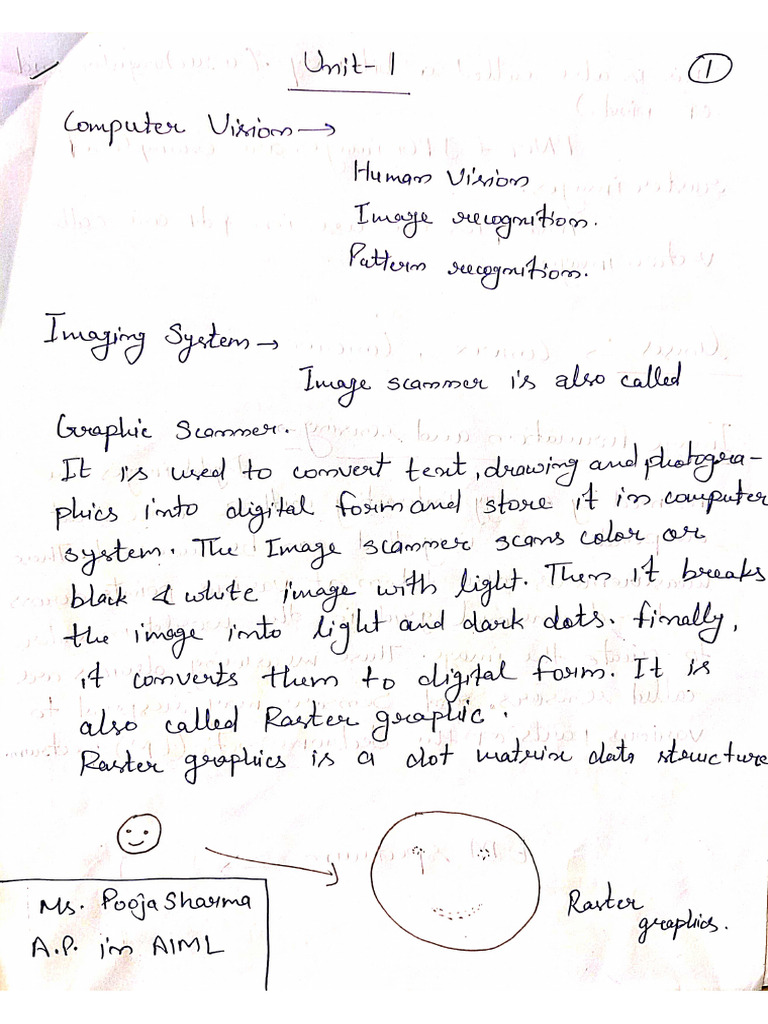 Unit-1
1
Computer Vision →
Human Vision
Image recognition.
Pattern recognition.
Imaging System →
Image scanner is also called
Graphic Scanner.
It is used to convert text, drawing and photogra-
phics into digital form and store it in computer
system. The Image scanner scans color or
black & white image with light. Then it breaks
the image into light and dark dots. finally,
it converts them to digital form. It is
also called Raster graphic.
Raster graphics is a dot matrix data structure
Raster
graphics.
Ms. Pooja Sharma
A.P. in AIML